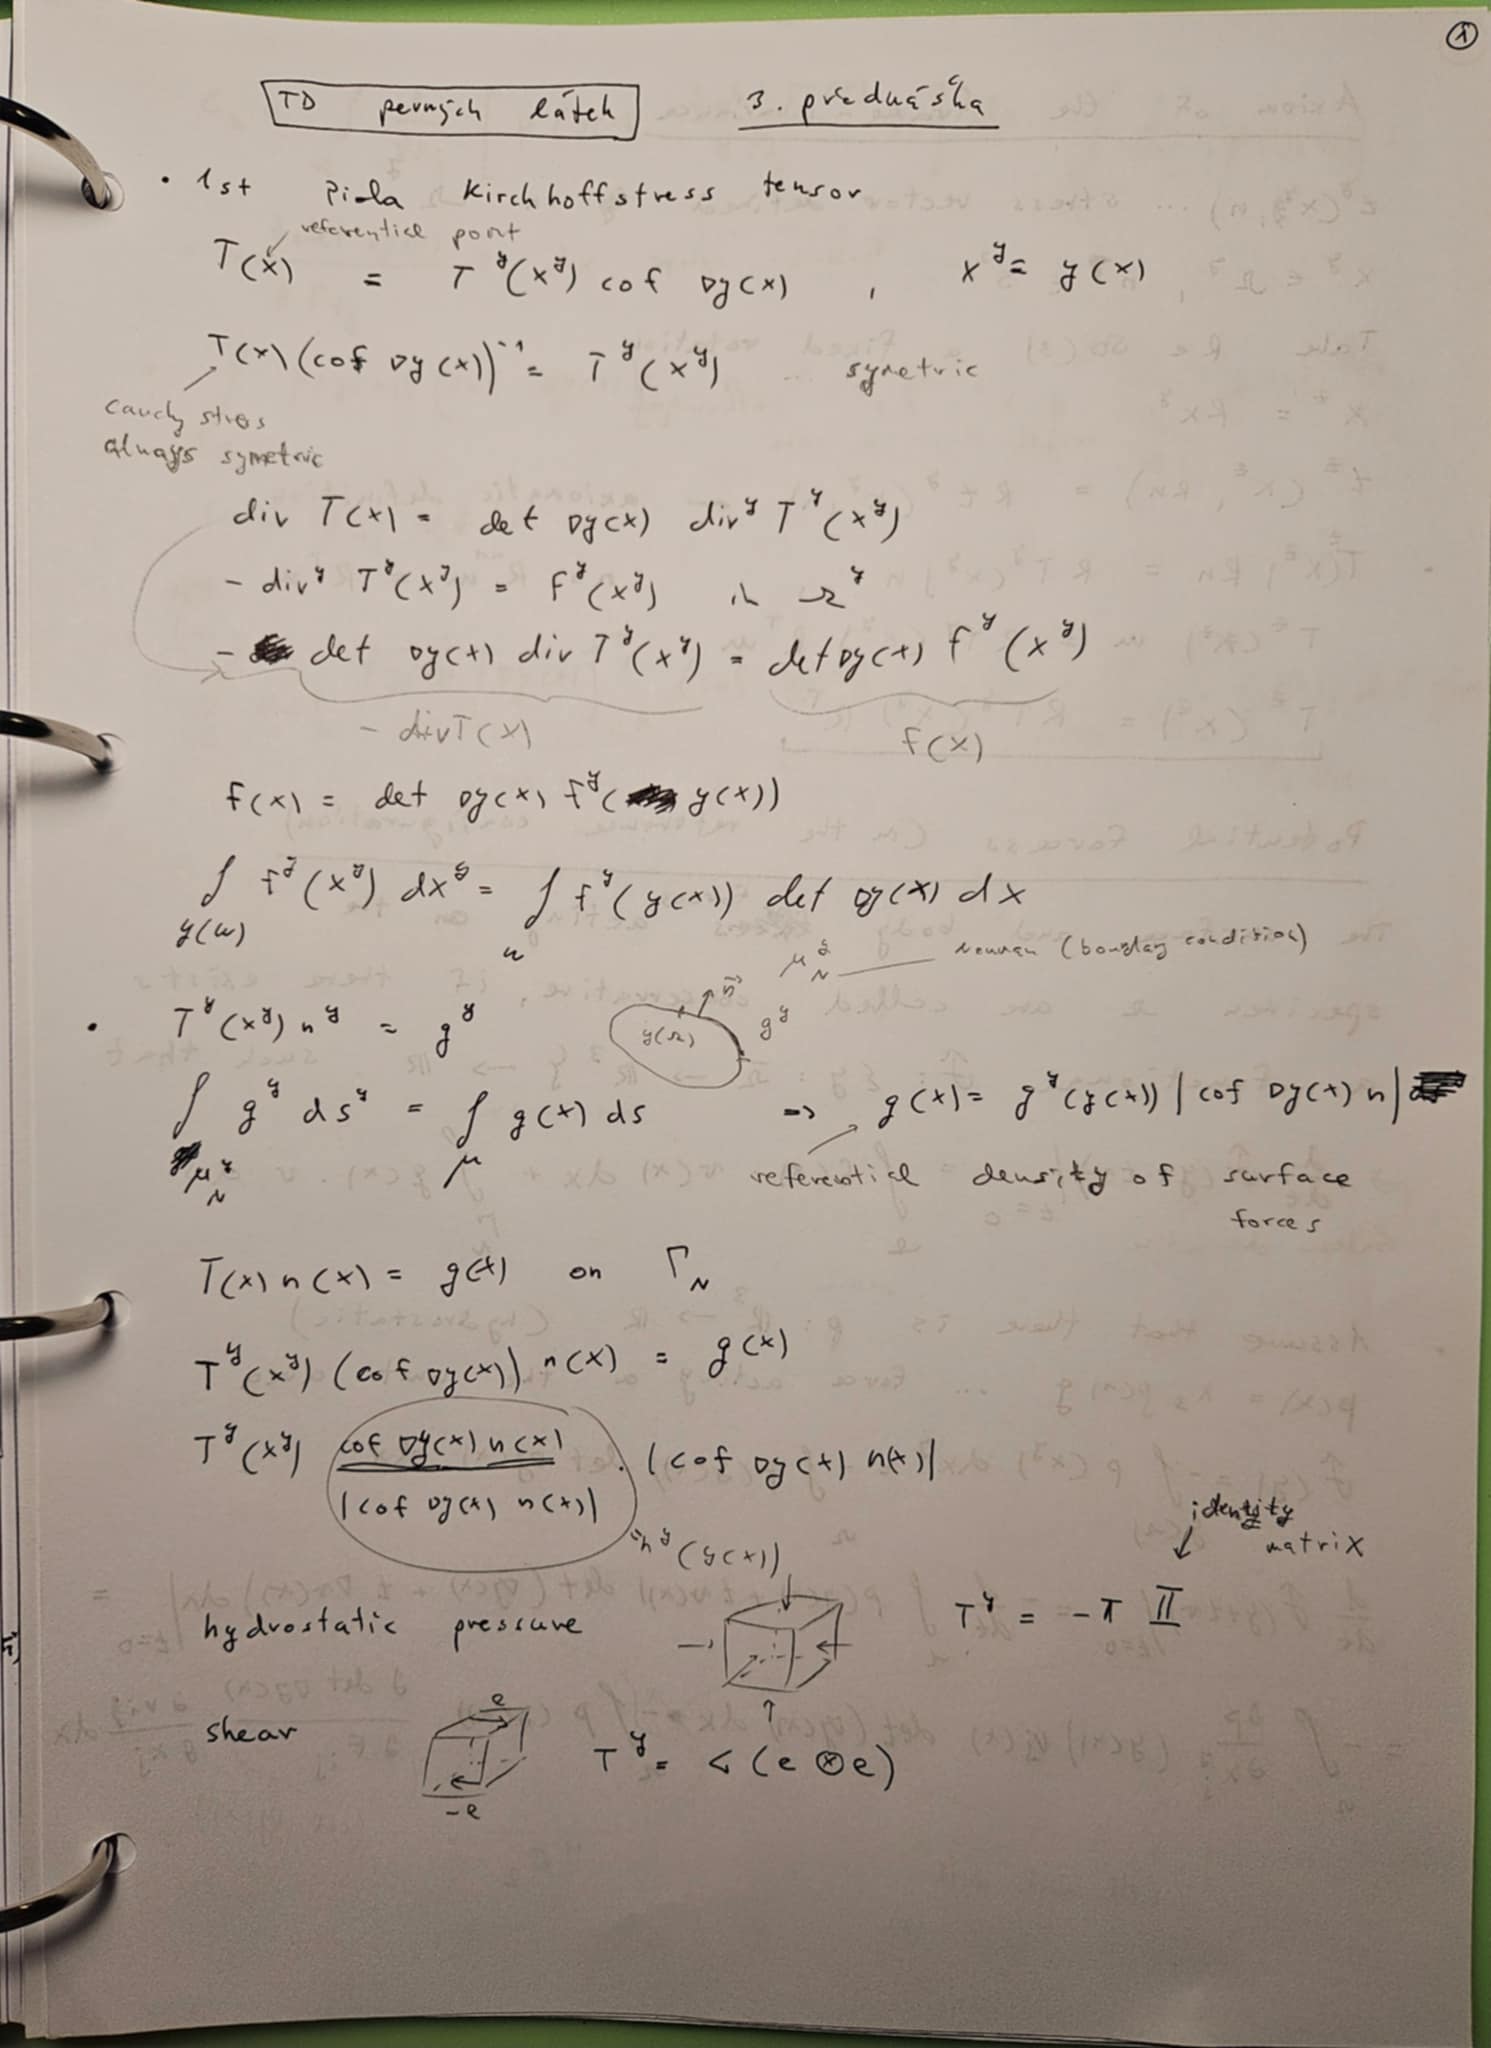 1
TD pevných látek 3. přednáška
• 1st Piola Kirchhoff stress tensor
referential point
T(x) = T^y(x^y) cof ∇y(x) , x^y = y(x)
T(x)(cof ∇y(x))^-1 = T^y(x^y) ... symetric
Cauchy stress
always symetric
div T(x) = det ∇y(x) div^y T^y(x^y)
- div^y T^y(x^y) = f^y(x^y) in Ω^y
- det ∇y(x) div T^y(x^y) = det ∇y(x) f^y(x^y)
- div T(x) f(x)
f(x) = det ∇y(x) f^y( y(x))
∫_{y(ω)} f^y(x^y) dx^y = ∫_ω f^y(y(x)) det ∇y(x) dx
μ_N^y Neuman (bounday condition)
• T^y(x^y) n^y = g^y y(Ω) n⃗ g^y
∫_{μ_N^y} g^y ds^y = ∫_μ g(x) ds => g(x) = g^y(y(x)) | cof ∇y(x) n|
referential density of surface
forces
T(x) n(x) = g(x) on Γ_N
T^y(x^y) (cof ∇y(x)) n(x) = g(x)
T^y(x^y) cof ∇y(x) n(x) / |cof ∇y(x) n(x)| · |cof ∇y(x) n(x)|
= n^y(y(x))
identity
matrix
hydrostatic pressure T^y = -π 𝕀
shear e -e T^y = (e ⊗ e)